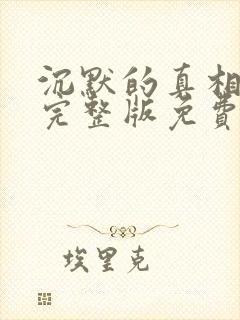 沉默的真相
完整版免費
埃里克